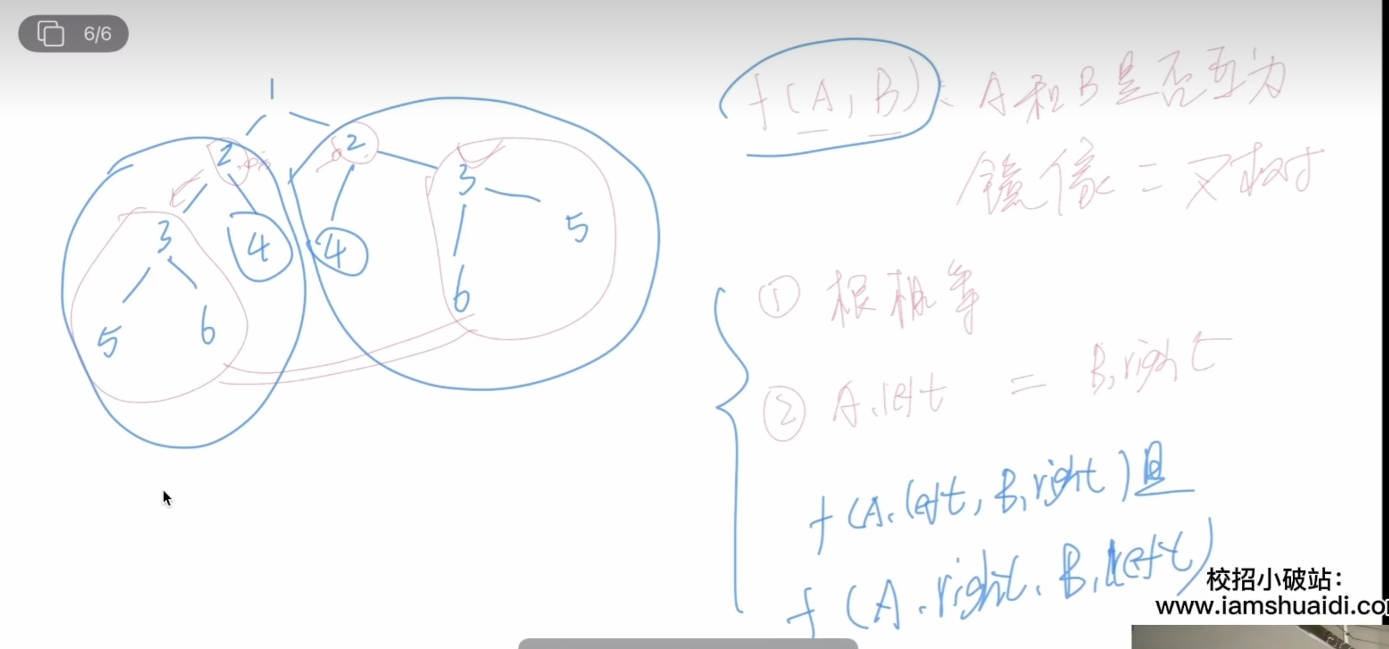 6/6
1
2 2
3 4 4 3 5
5 6 6
f(A, B): A和B是否互为
镜像二叉树
① 根相等
② A.left = B.right
f(A.left, B.right)且
f(A.right, B.left)
校招小破站：
www.iamshuaidi.co